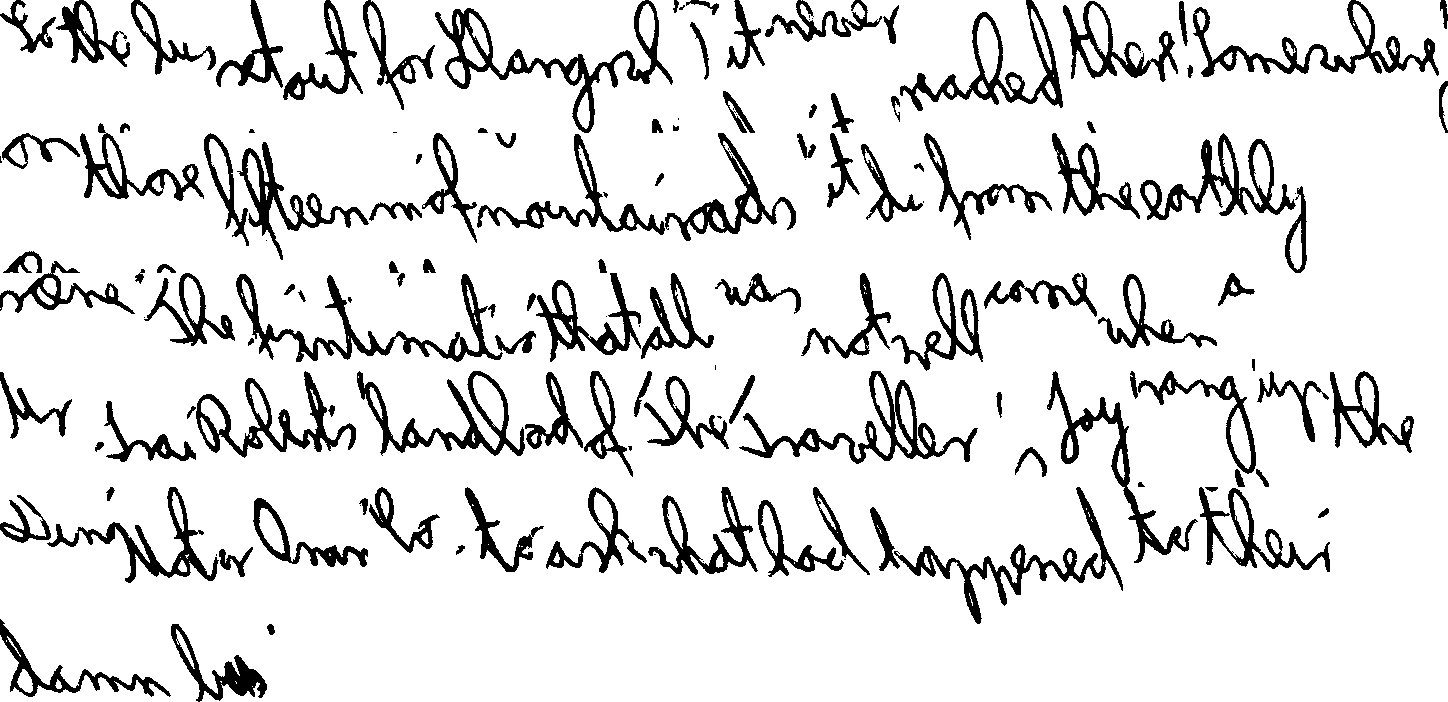 So the bus set out for Llangrwl It never reached there! Somewhere,
on those fifteen m of mountain roads it di from the earthly
scene. The first intimation that all was not well come when a
Mr. Ivai Roberts landlord of "The Traveller's Joy rang up the
King Motor Omn Co. to ask what had happened to their
damn bus